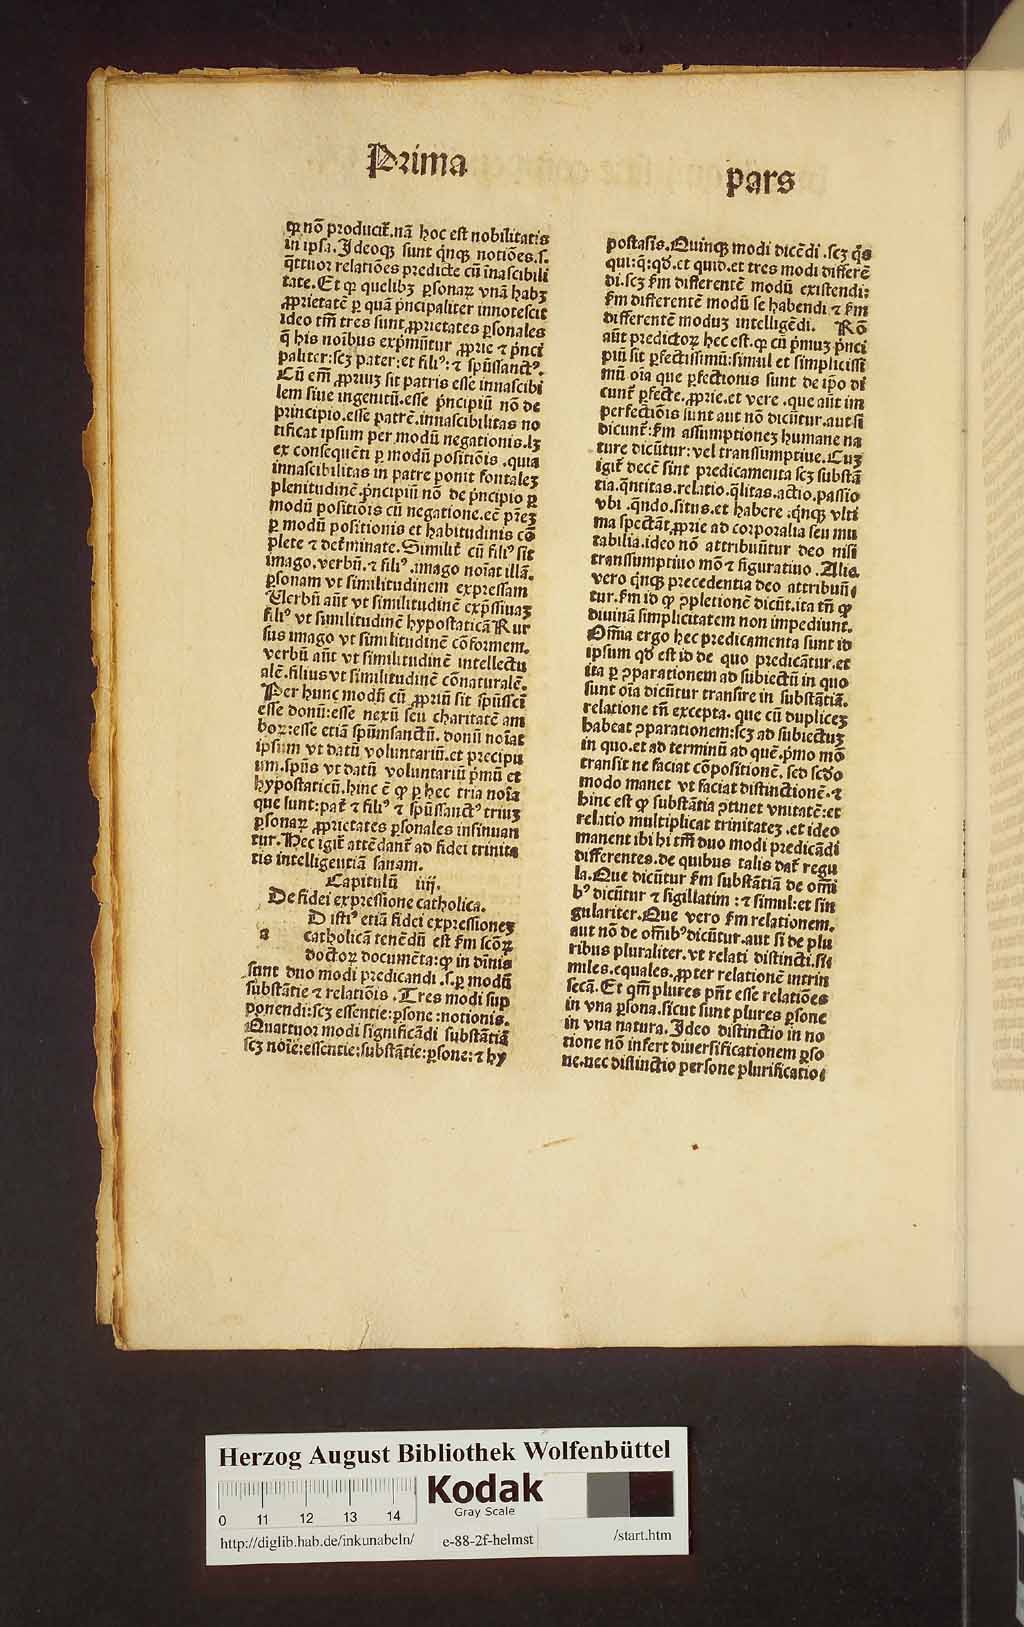 Prima
pars
ꝙ nō producit̃.nã hoc est nobilitatis
in ipsa.Ideoqꝫ sunt q̇nqꝫ notiōes.s.
q̃ttuor relatiões predicte cũ inascibili
tate.Et ꝙ quelibꝫ ꝑsonaꝝ vnã habꝫ
ꝓprietatẽ ꝑ quã pͥncipaliter innotescit
ideo tm̃ tres sunt ꝓprietates ꝑsonales
q̃ his noībus exprimũtur ꝓprie ⁊ pͥnci
paliter:scꝫ pater:et filiꝰ:⁊ spũssanctꝰ.
Cũ em̃ ꝓpriuꝫ sit patris esse innascibi
lem siue ingenitũ.esse pͥncipiũ nõ de
principio.esse patrẽ.innascibilitas no
tificat ipsum per modũ negationis.lꝫ
ex consequẽti ꝑ modũ positiõis .quia
innascibilitas in patre ponit fontaleꝫ
plenitudinẽ.pͥncipiũ nõ de pͥncipio ꝑ
modũ positiõis cũ negatione.eẽ pr̃eꝫ
ꝑ modũ positionis et habitudinis cō
plete ⁊ det̃minate.Similit̃ cũ filiꝰ sit
imago.verbũ.⁊ filiꝰ.imago noīat illã.
ꝑsonam vt similitudinem expressam
Uerbũ aũt vt similitudinẽ exp̃ssiuaꝫ
filiꝰ vt similitudinẽ hypostaticã Rur
sus imago vt similitudinẽ cōformem.
verbũ aũt vt similitudinẽ intellectu
alẽ.filius vt similitudinẽ cōnaturalẽ.
Per hunc modũ cũ ꝓpriũ sit spũssct̃i
esse donũ:esse nexũ seu charitatẽ am
boꝝ:esse etiã spũmsanctũ. donũ noīat
ipsum vt datũ voluntariũ.et precipu
um.spũs vt datũ voluntariũ pͥmũ et
hypostaticũ.hinc ẽ ꝙ ꝑ hec tria noīa
que sunt:pat̃ ⁊ filiꝰ ⁊ spũssanctꝰ triuꝫ
ꝑsonaꝝ ꝓprietates ꝑsonales insinuan
tur.Hec igit̃ attẽdant̃ ad fidei trinita
tis intelligentiã sanam.
Capitulũ iiij.
De fidei expressione catholica.
D istiꝰ etiã fidei expressioneꝫ
a catholicã tenẽdũ est ẜm scõꝝ
doctoꝝ documẽta:ꝙ in diũis
sunt duo modi predicandi .s.ꝑ modũ
substãtie ⁊ relatiõis .Tres modi sup
ponendi:scꝫ essentie:ꝑsone:notionis.
Quattuor modi significãdi substãtiã
scꝫ noīe:essentie:substãtie:ꝑsone:⁊ hy
postasis.Quinqꝫ modi dicẽdi .scꝫ q̇s
qui:q̃:qđ.et quid.et tres modi differẽ
di.scꝫ ẜm differentẽ modũ existendi:
ẜm differentẽ modũ se habendi ⁊ ẜm
differentẽ moduꝫ intelligẽdi. Rō
aũt predictoꝝ hec est.ꝙ cũ pͥmuꝫ pͥnci
piũ sit ꝑfectissimũ:simul et simplicissi
mũ oīa que ꝑfectionis sunt de ip̃o di
cunt̃ ꝑfecte.ꝓprie.et vere .que aũt im
perfectiõis sunt aut nõ dicũtur.aut si
dicunt̃:ẜm assumptioneꝫ humane na
ture dicũtur:vel transsumptiue.Cuꝫ
igit̃ decẽ sint predicamenta scꝫ substã
tia.q̃ntitas.relatio.q̃litas.actio.passio
vbi .q̃ndo.situs.et habere :q̇nqꝫ vlti
ma spectãt ꝓprie ad corporalia seu mu
tabilia.ideo nõ attribuũtur deo nisi
transsumptiuo mō ⁊ figuratiuo .Alia
vero q̇nqꝫ precedentia deo attribuũ
tur.ẜm id ꝙ ↄpletionẽ dicũt.ita tñ ꝙ
diuinã simplicitatem non impediunt.
Om̃ia ergo hec predicamenta sunt id
ipsum qđ est id de quo predicãtur.et
ita ꝑ ↄparationem ad subiectũ in quo
sunt oīa dicũtur transire in substãtiã.
relatione tñ excepta. que cũ dupliceꝫ
habeat ↄparationem:scꝫ ad subiectuꝫ
in quo.et ad terminũ ad quẽ.pͥmo mō
transit ne faciat cōpositionẽ. sed scđo
modo manet vt faciat distinctionẽ.⁊
hinc est ꝙ substãtia ↄtinet vnitatẽ:et
relatio multiplicat trinitateꝫ .et ideo
manent ibi hi tm̃ duo modi predicãdi
differentes.de quibus talis dat̃ regu
la.Que dicũtur ẜm substãtiã de om̃i
bꝰ dicũtur ⁊ sigillatim :⁊ simul:et sin
gulariter.Que vero ẜm relationem.
aut nõ de om̃ibꝰ dicũtur.aut si de plu
ribus pluraliter.vt relati distincti.si
miles.equales.ꝓpter relationẽ intrin
secã.Et qm̃ plures pñt esse relatiões
in vna ꝑsona.sicut sunt plures ꝑsone
in vna natura.Ideo distinctio in no
tione nõ infert diuersificationem ꝑso
ne.nec distinctio persone plurificatio
Herzog August Bibliothek Wolfenbüttel
0 11 12 13 14
Kodak
Gray Scale
http://diglib.hab.de/inkunabeln/ e-88-2f-helmst /start.htm